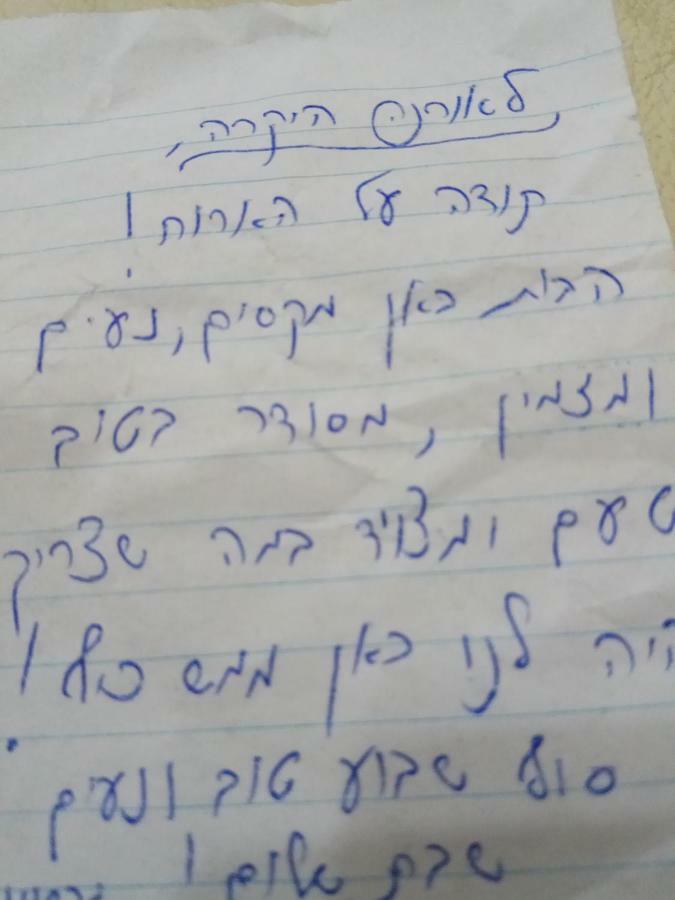 היקרה,
תודה על הארוח!
הבית כאן מקסים, נעים
ומזמין, מסודר בטוב
טעם ומצויד במה שצריך
היה לנו כאן ממש כיף!
סוף שבוע טוב ונעים
שבת שלום!